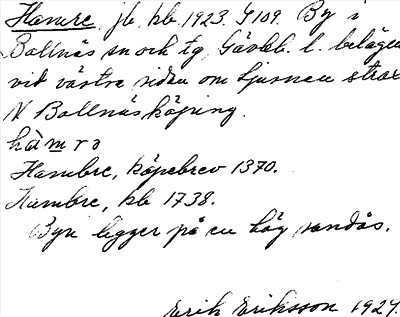 Hamre, jb, kb. 1923. G109. By i
Bollnäs sn och tg, Gävleb. l. belägen
vid västra sidan om Ljusnan strax
N Bollnäs köping.
hàmra
Hambre, köpebrev 1370.
Hambre, kb 1738.
Byn ligger på en hög sandås.
Erik Eriksson 1927.